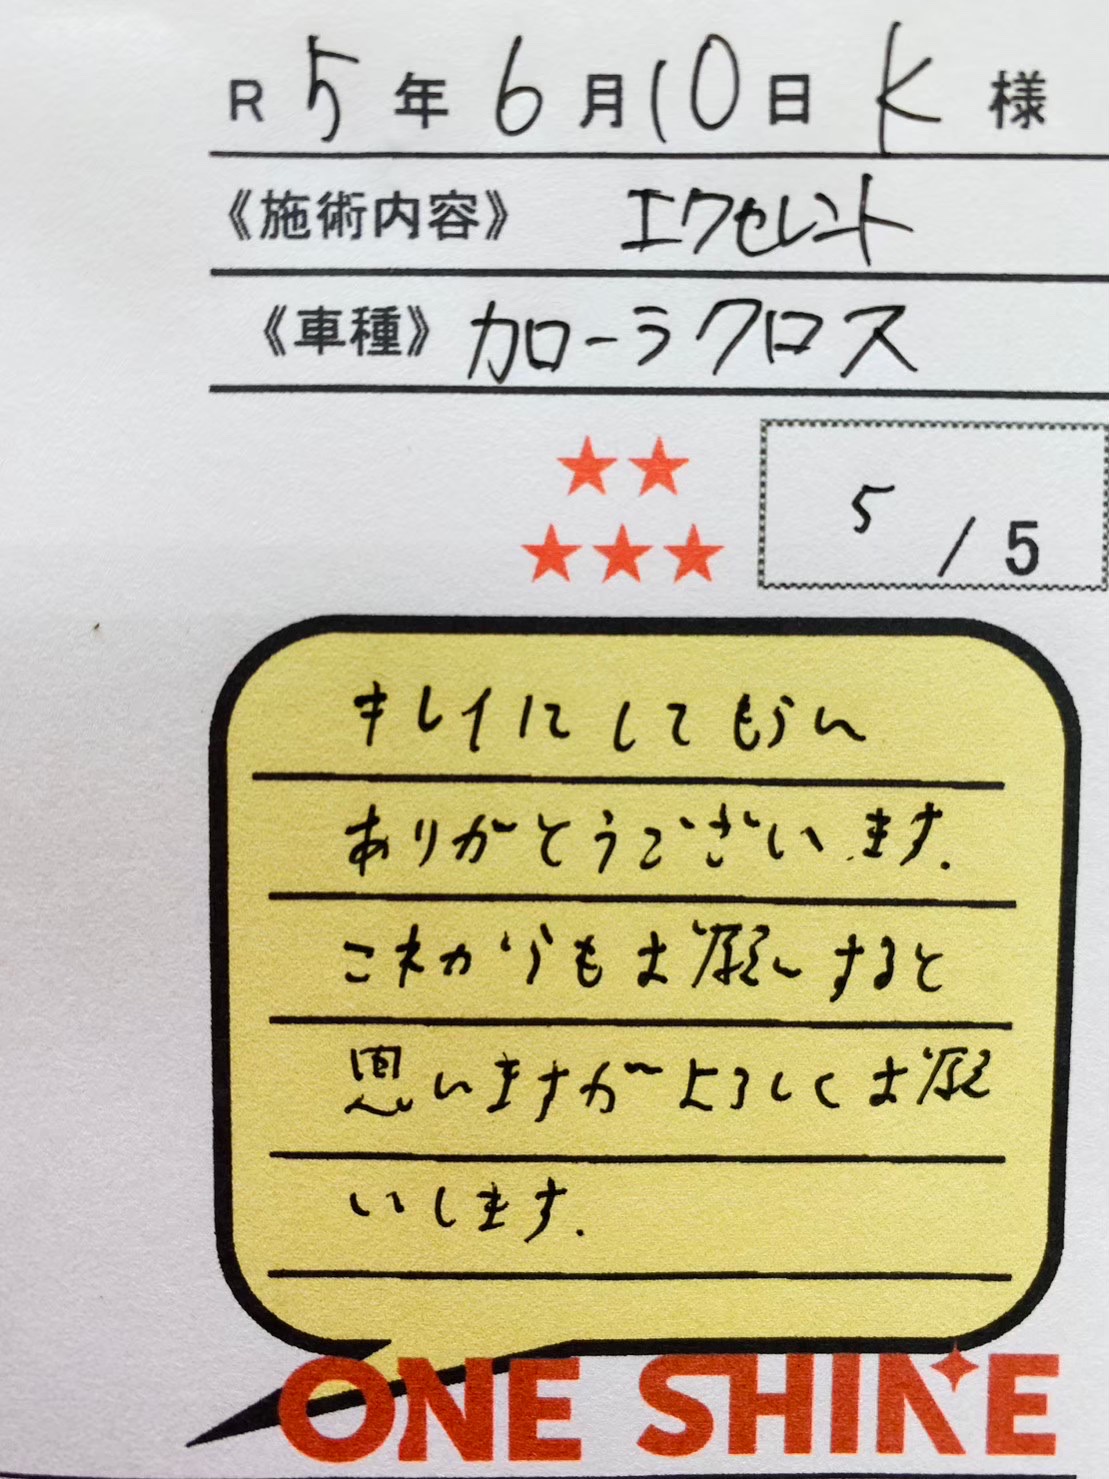 R 5年 6月10日 K 様
《施術内容》 エクセレント
《車種》 カローラクロス
★★
★★★
5 / 5
キレイにしてもらい
ありがとうございます.
これからもお願いすると
思いますがよろしくお願
いします.
ONE SHINE